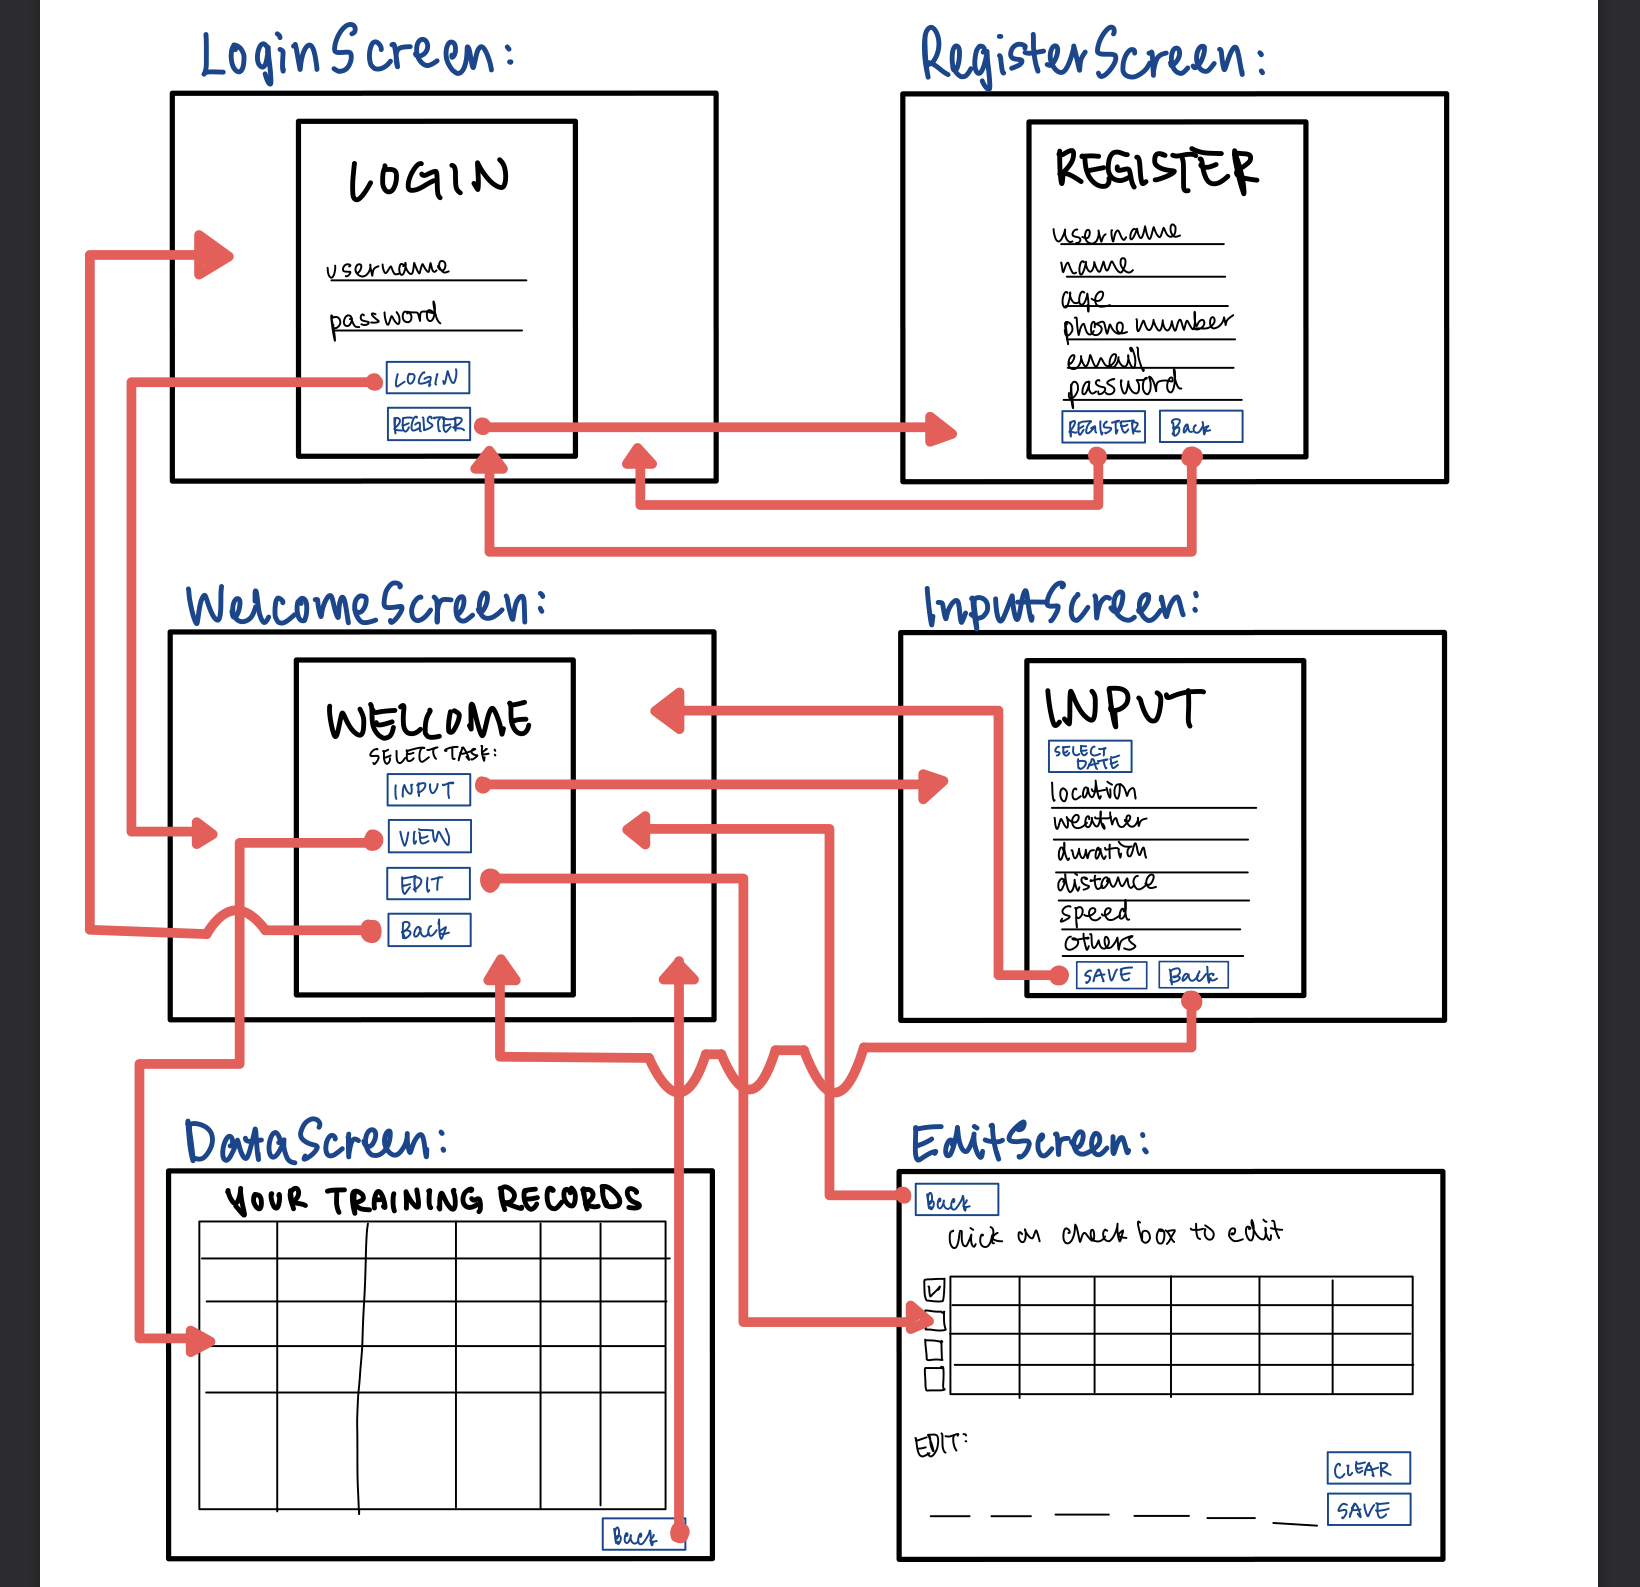 LoginScreen:
LOGIN
username
password
LOGIN
REGISTER
RegisterScreen:
REGISTER
username
name
age
phone number
email
password
REGISTER Back
WelcomeScreen:
WELCOME
SELECT TASK:
INPUT
VIEW
EDIT
Back
InputScreen:
INPUT
SELECT
DATE
location
weather
duration
distance
speed
others
SAVE Back
DataScreen:
YOUR TRAINING RECORDS
Back
EditScreen:
Back
click on check box to edit
EDIT:
CLEAR
SAVE